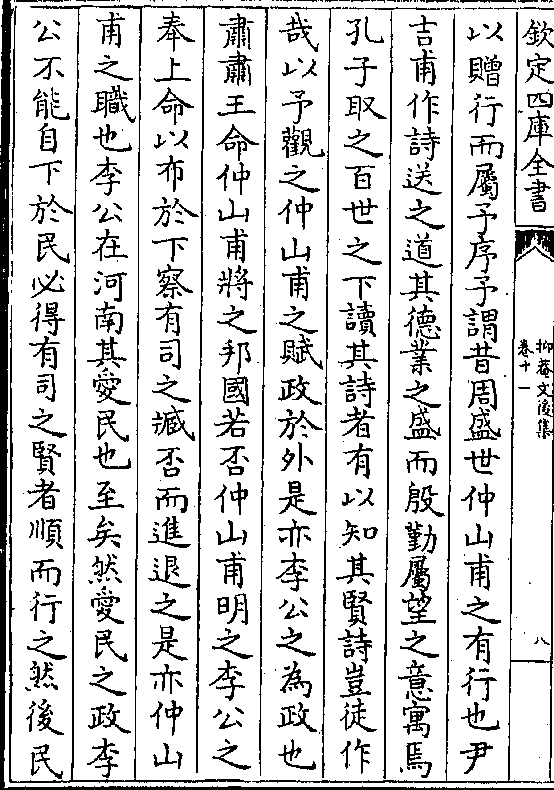 欽定四庫全書
抑菴文後集
卷十一
八
以贈行而屬予序予謂昔周盛世仲山甫之有行也尹
吉甫作詩送之道其德業之盛而殷勤屬望之意寓焉
孔子取之百世之下讀其詩者有以知其賢詩豈徒作
哉以予觀之仲山甫之賦政於外是亦李公之為政也
肅肅王命仲山甫將之邦國若否仲山甫明之李公之
奉上命以布於下察有司之臧否而進退之是亦仲山
甫之職也李公在河南其愛民也至矣然愛民之政李
公不能自下於民必得有司之賢者順而行之然後民